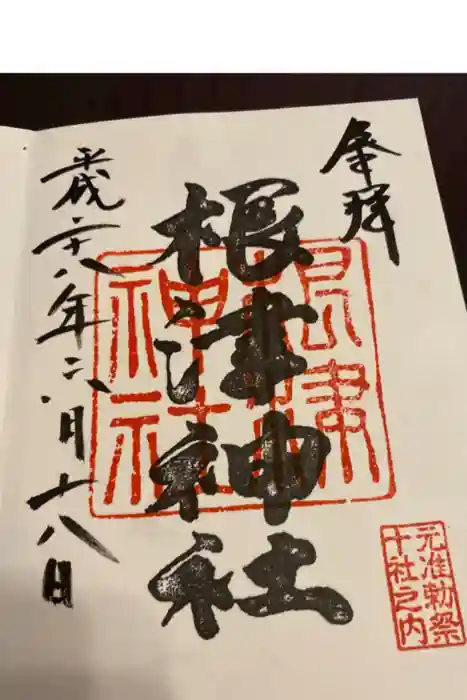 奉拝
根津神社
平成二十八年六月十八日
根津
神社
元准勅祭
十社之内